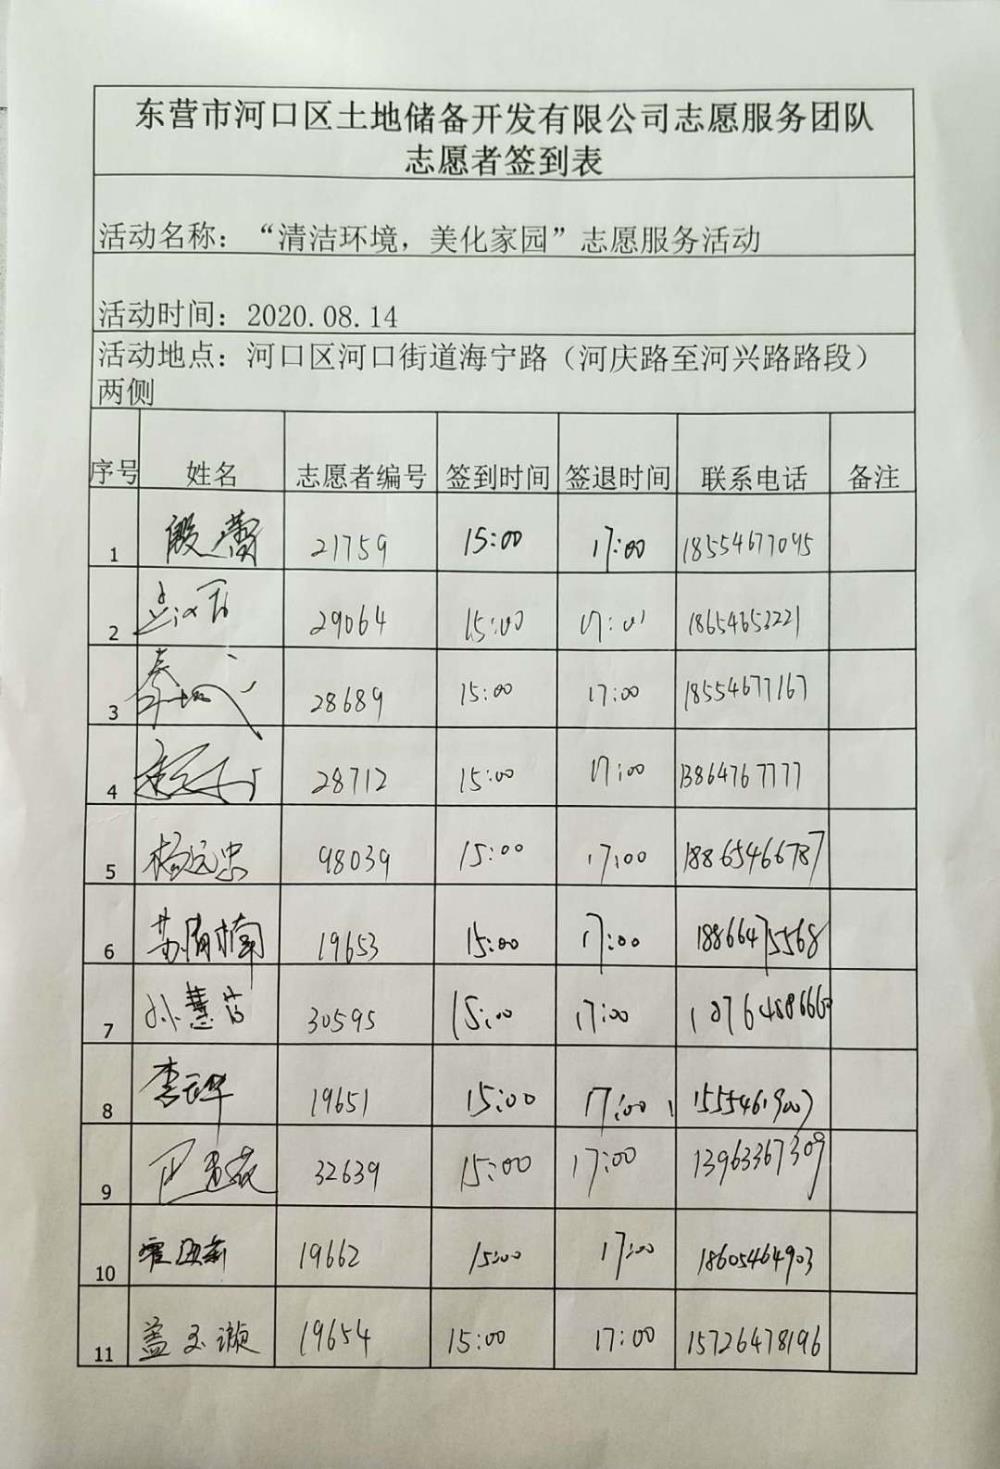 东营市河口区土地储备开发有限公司志愿服务团队
志愿者签到表
活动名称：“清洁环境，美化家园”志愿服务活动
活动时间：2020.08.14
活动地点：河口区河口街道海宁路（河庆路至河兴路路段）
两侧
序号 姓名 志愿者编号 签到时间 签退时间 联系电话 备注
1 21759 15:00 17:00 18554677095
2 29064 15:00 17:00 18654652221
3 28689 15:00 17:00 18554677167
4 28712 15:00 17:00 13864767777
5 杨远忠 98039 15:00 17:00 18865466787
6 苏楠 19653 15:00 17:00 18866475568
7 孙慧 30595 15:00 17:00
8 李 19651 15:00 17:00
9 32639 15:00 17:00 13963367309
10 19662 15:00 17:00 18605464903
11 盖玉漩 19654 15:00 17:00 15726478196